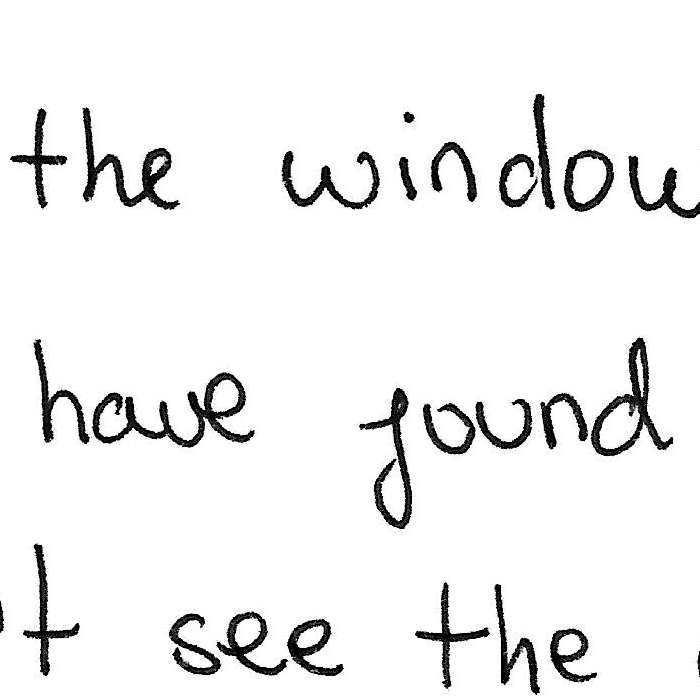 the window
have found
t see the